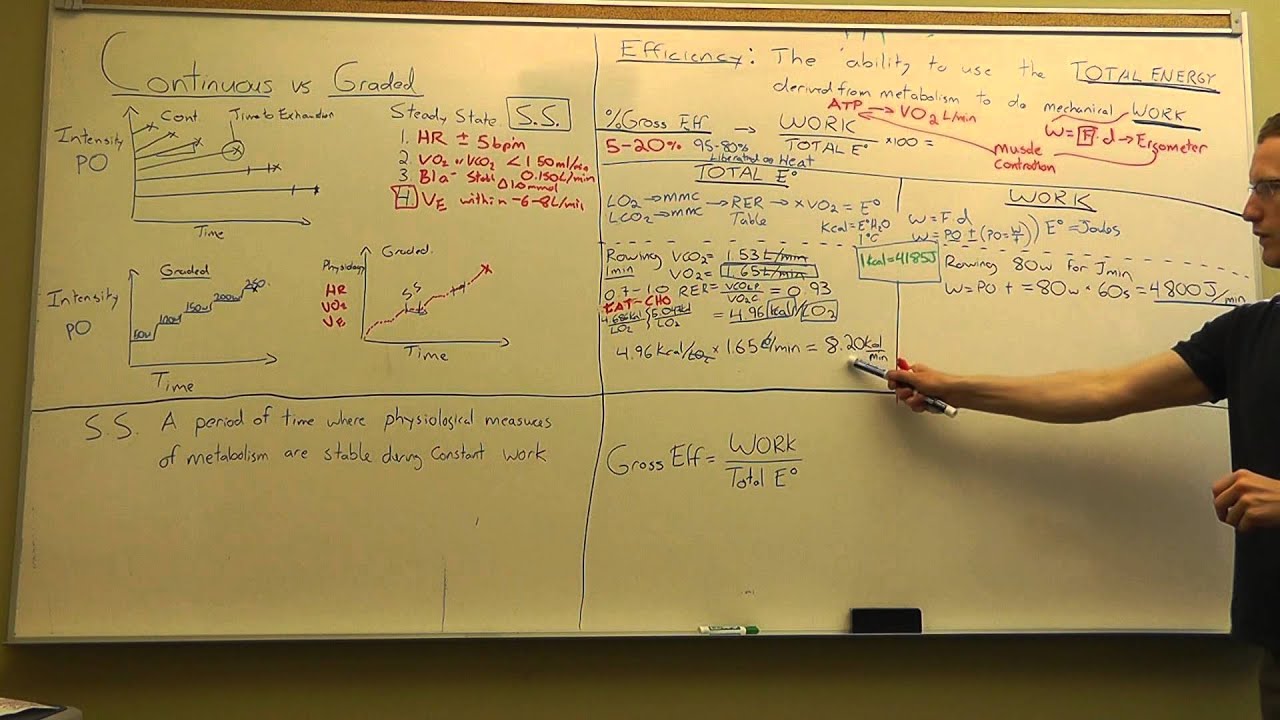 Continuous vs Graded
Intensity
PO
Cont.
Time to Exhaustion
Time
Steady State S.S.
1. HR ± 5bpm
2. VO2 or VCO2 < 150ml/min
0.150L/min
3. Bla- Stable Δ1.0mmol
4 VE within -6-8L/min
Intensity
PO
Graded
50w
100w
150w
200w
250
Time
Physiology
HR
VO2
VE
Graded
SS
Time
S.S. A period of time where physiological measures
of metabolism are stable during constant work
Efficiency: The ability to use the TOTAL ENERGY
derived from metabolism to do mechanical WORK
ATP → VO2 L/min
W = F · d → Ergometer
Muscle
%Gross Eff → WORK / TOTAL E° ×100 =
5-20% 95-80%
Liberated as Heat
TOTAL E°
LO2 → mmc → RER → × VO2 = E°
LCO2 → mmc Table
Kcal = E° H2O
1°C
Rowing VCO2 = 1.53 L/min
1min VO2 = 1.65 L/min
0.7-1.0 RER = = 0.93
FAT-CHO
4.686kcal/LO2 5.047kcal/LO2 = 4.96 kcal/LO2
4.96 Kcal/LO2 × 1.65 /min = 8.20 kcal/min
WORK
W = F·d
E° = Joules
1kcal = 4185J
Rowing 80w for
= 80w · 60s = 4800J/min
Gross Eff = WORK / Total E°